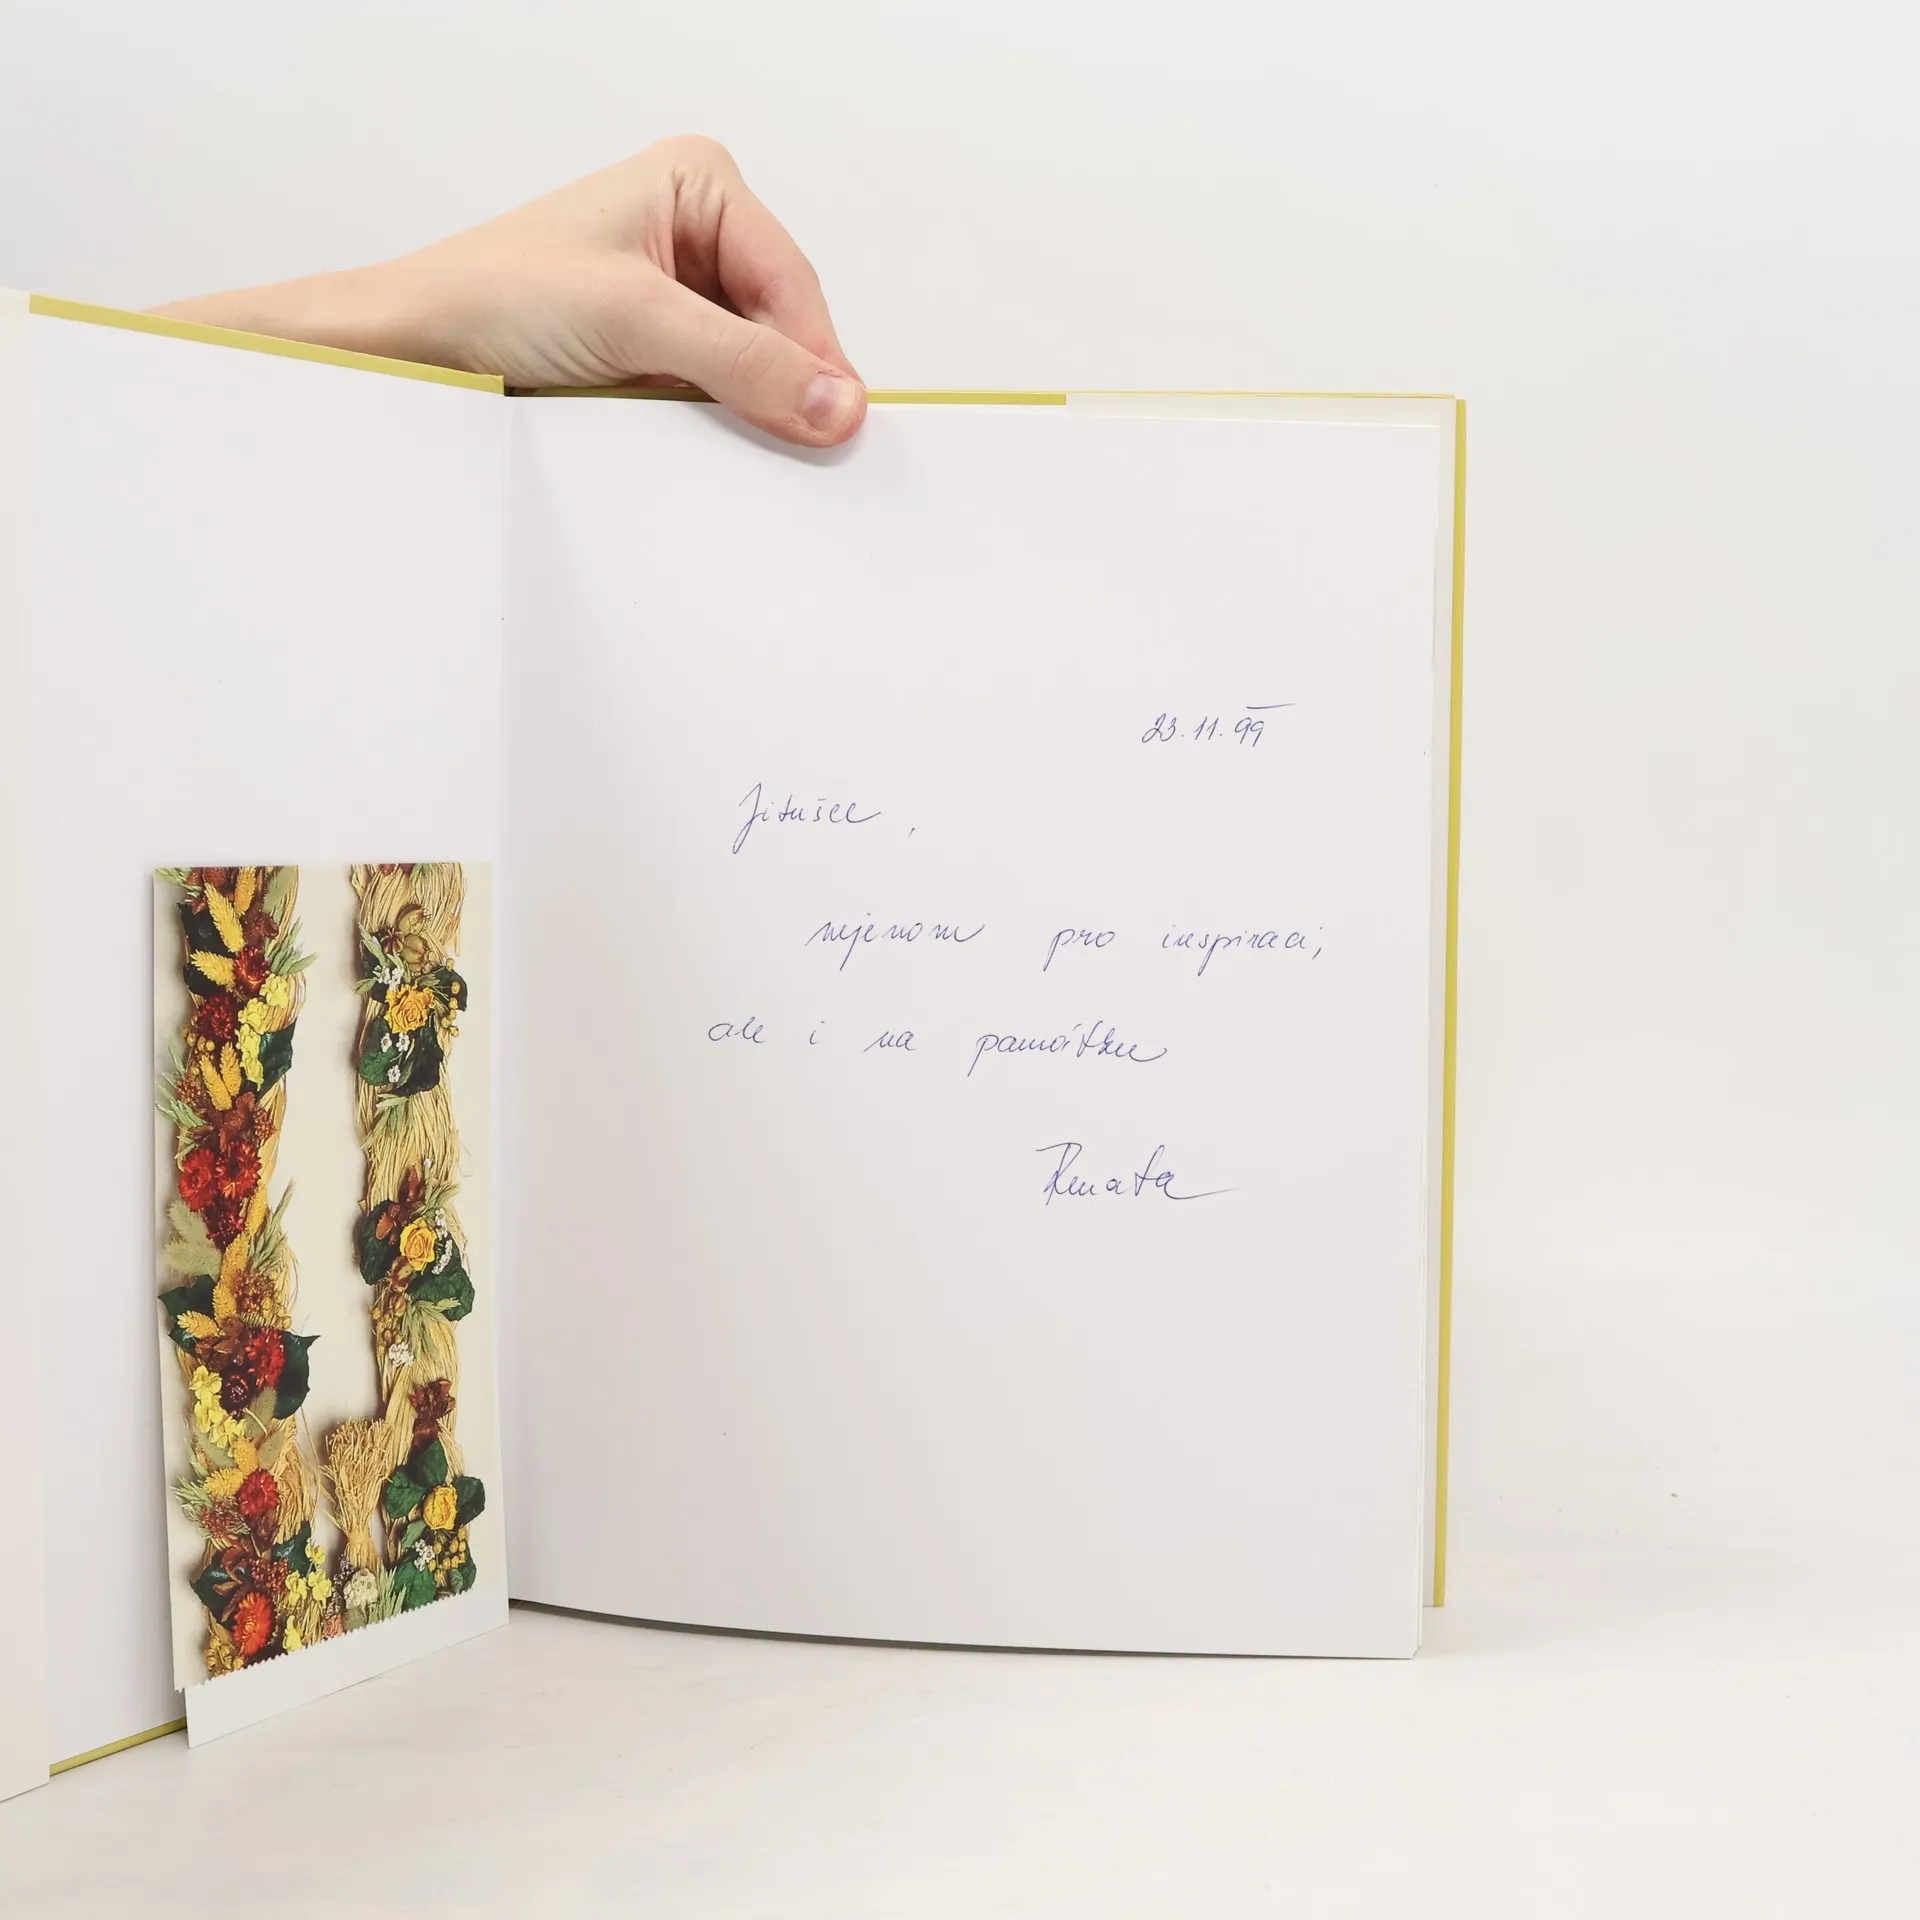 23.11.99
Jitušce,
nejenom pro inspiraci,
ale i na památku
Renata